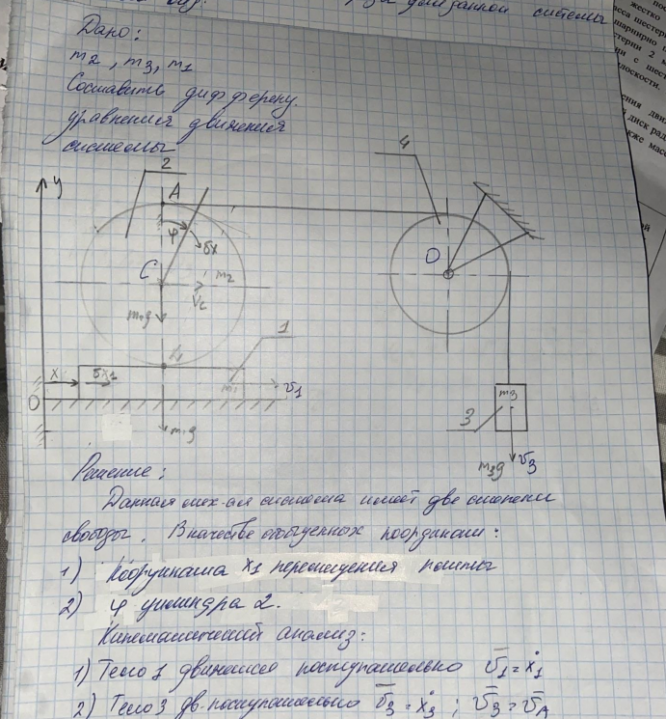 системы
Дано:
m2, m3, m1
Составить дифференц.
уравнения движения
системы
y
2
A
4
φ
δx
C
m2
Vc
O
m2g
1
x
δx1
m1
v1
O
m1g
m3
3
m3g
v3
Решение:
Данная мех-ая система имеет две степени
свободы. В качестве обобщенных координат:
1) Координата x1 перемещения плиты
2) φ цилиндра 2.
Кинематический анализ:
1) Тело 1 движется поступательно v̄1 = ẋ1
2) Тело 3 дв. поступательно v̄3 = ẋ3; v̄3 = v̄A